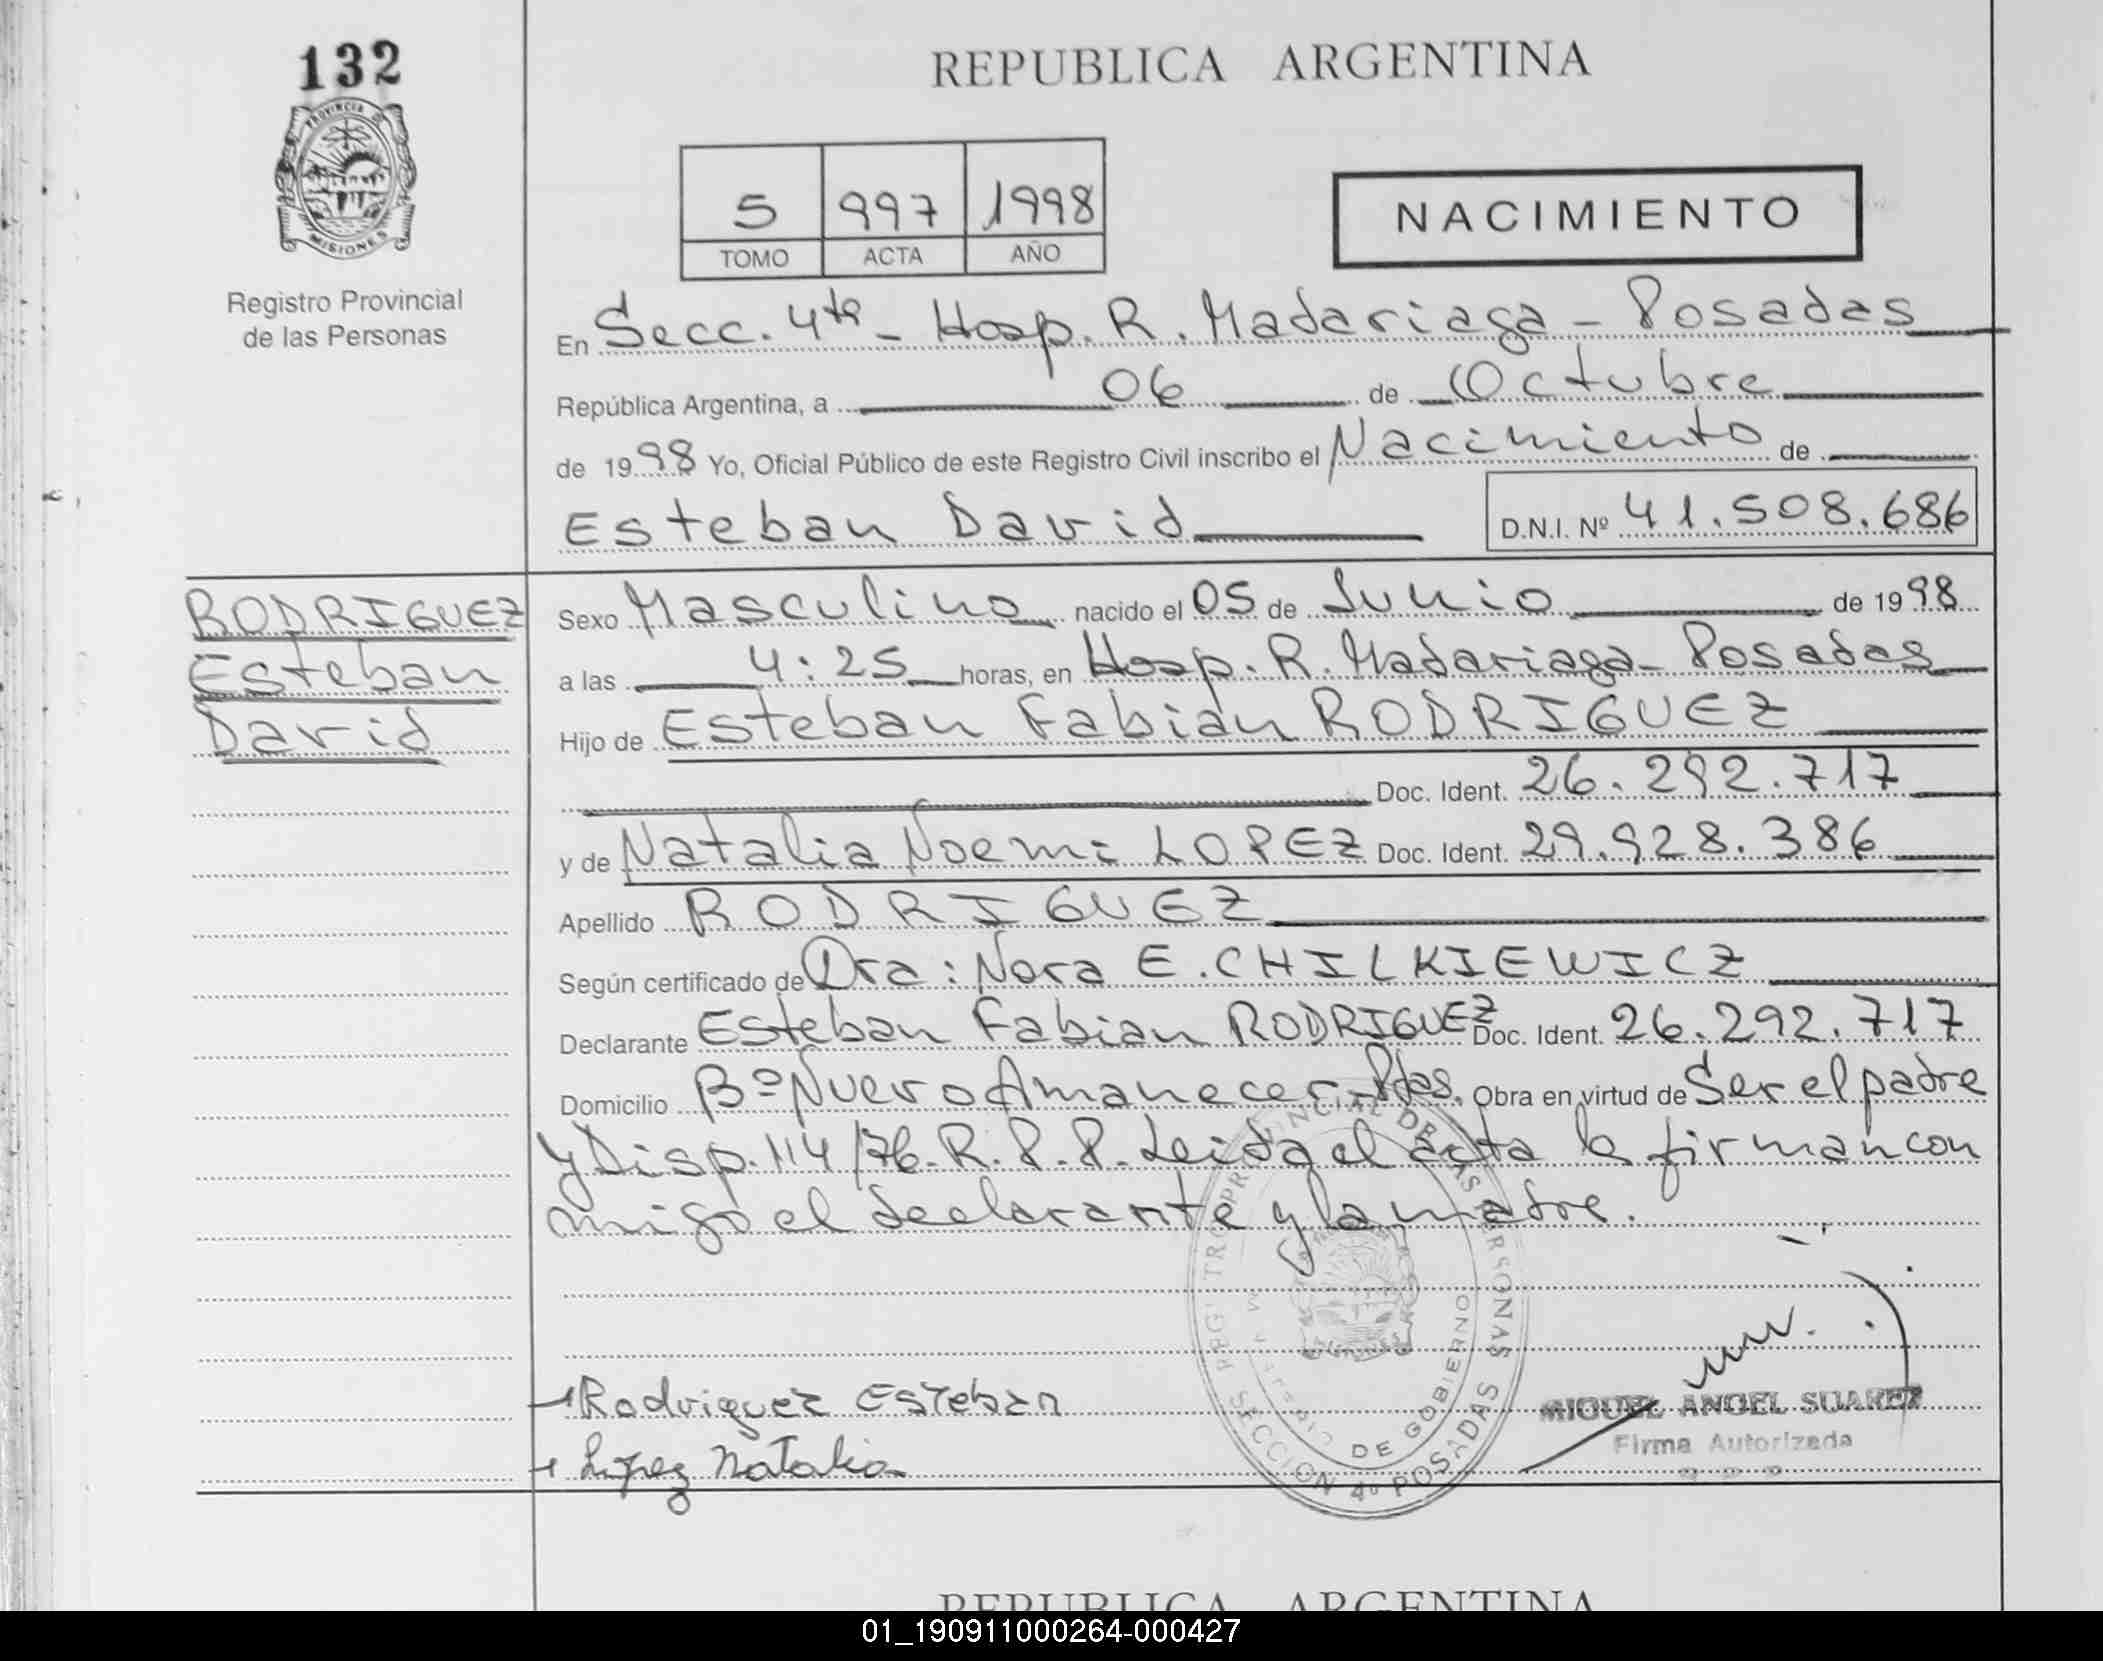 132
REPUBLICA ARGENTINA
PROVINCIA DE
MISIONES
Registro Provincial
de las Personas
5 997 1998
TOMO ACTA AÑO
NACIMIENTO
En Secc. 4ta - Hosp. R. Madariaga - Posadas
República Argentina, a 06 de Octubre
de 1998 Yo, Oficial Público de este Registro Civil inscribo el Nacimiento de
Esteban David D.N.I. Nº 41.508.686
RODRIGUEZ
Esteban
David
Sexo Masculino nacido el 05 de Junio de 1998
a las 4:25 horas, en Hosp. R. Madariaga - Posadas
Hijo de Esteban Fabian RODRIGUEZ
Doc. Ident. 26.292.717
y de Natalia Noemi LOPEZ Doc. Ident. 29.928.386
Apellido RODRIGUEZ
Según certificado de Dra: Nora E. CHILKIEWICZ
Declarante Esteban Fabian RODRIGUEZ Doc. Ident. 26.292.717
Domicilio Bº Nuevo Amanecer - Pdas. Obra en virtud de Ser el padre
y Disp. 114/76. R.P.P. Leida el acta la firman con
migo el declarante y la madre.
REGISTRO PROVINCIAL DE LAS PERSONAS
DE GOBIERNO
SECCION 4º POSADAS
Rodriguez Esteban
López Natalia
MIGUEL ANGEL SUAREZ
Firma Autorizada
REPUBLICA ARGENTINA
01_190911000264-000427